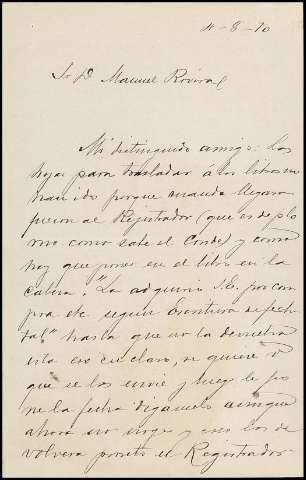 4-8-70
Sr D. Manuel Rovira
Mi distinguido amigo: Las
hojas para trasladar á los libros no
han ido porque cuando llegaron
fueron al Registrador (que es de plo
mo como sabe el Conde) y como
hay que poner en el libro en la
"La adquirió S.E. por com
pra etc según Escritura de fecha
hasta que no la devuelva
está en claro, se quiere V
que se los envie y luego le po
ne la fecha digamelo aunque
ahora no urge y creo los de
volvera pronto el Registrador.